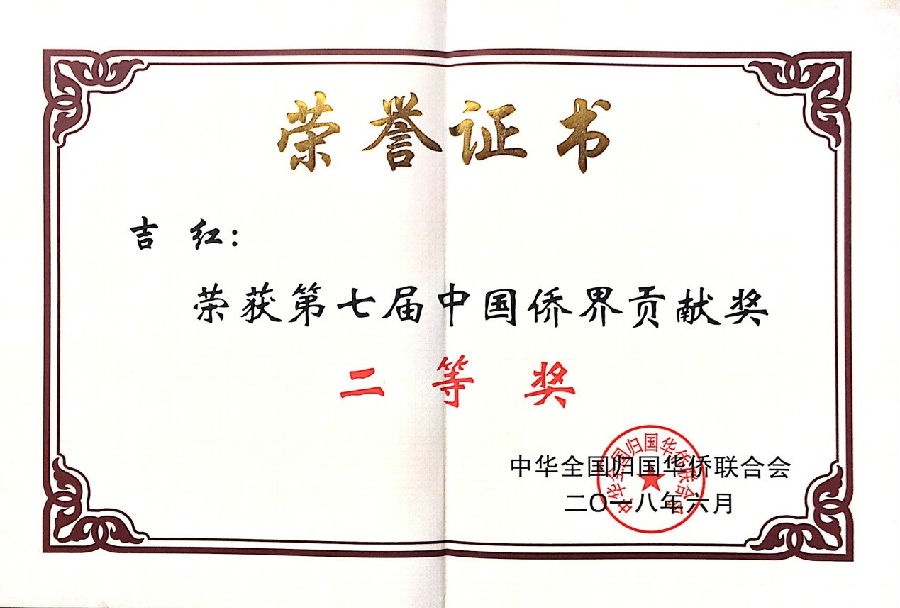 荣誉证书
吉 红：
荣获第七届中国侨界贡献奖
二等奖
中华全国归国华侨联合会
二〇一八年六月
中华全国归国华侨联合会